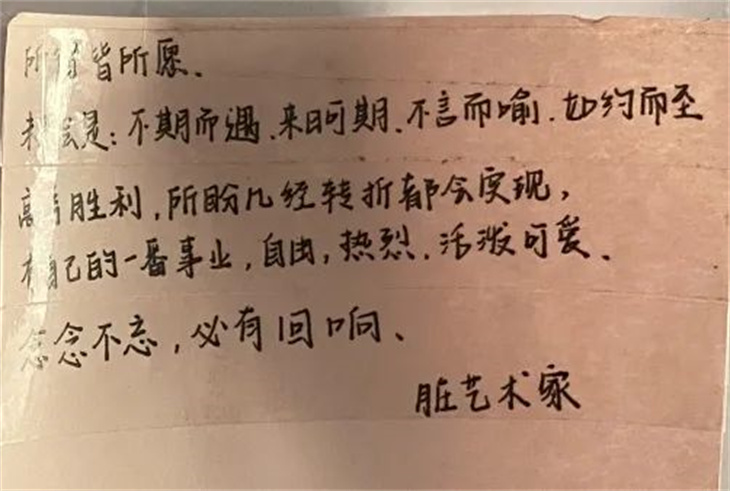 所得皆所愿、
未来会是:不期而遇、来日可期、不言而喻、如约而至
高考胜利,所盼几经转折都会实现,
有自己的一番事业,自由,热烈,活泼可爱、
念念不忘,必有回响、
脏艺术家